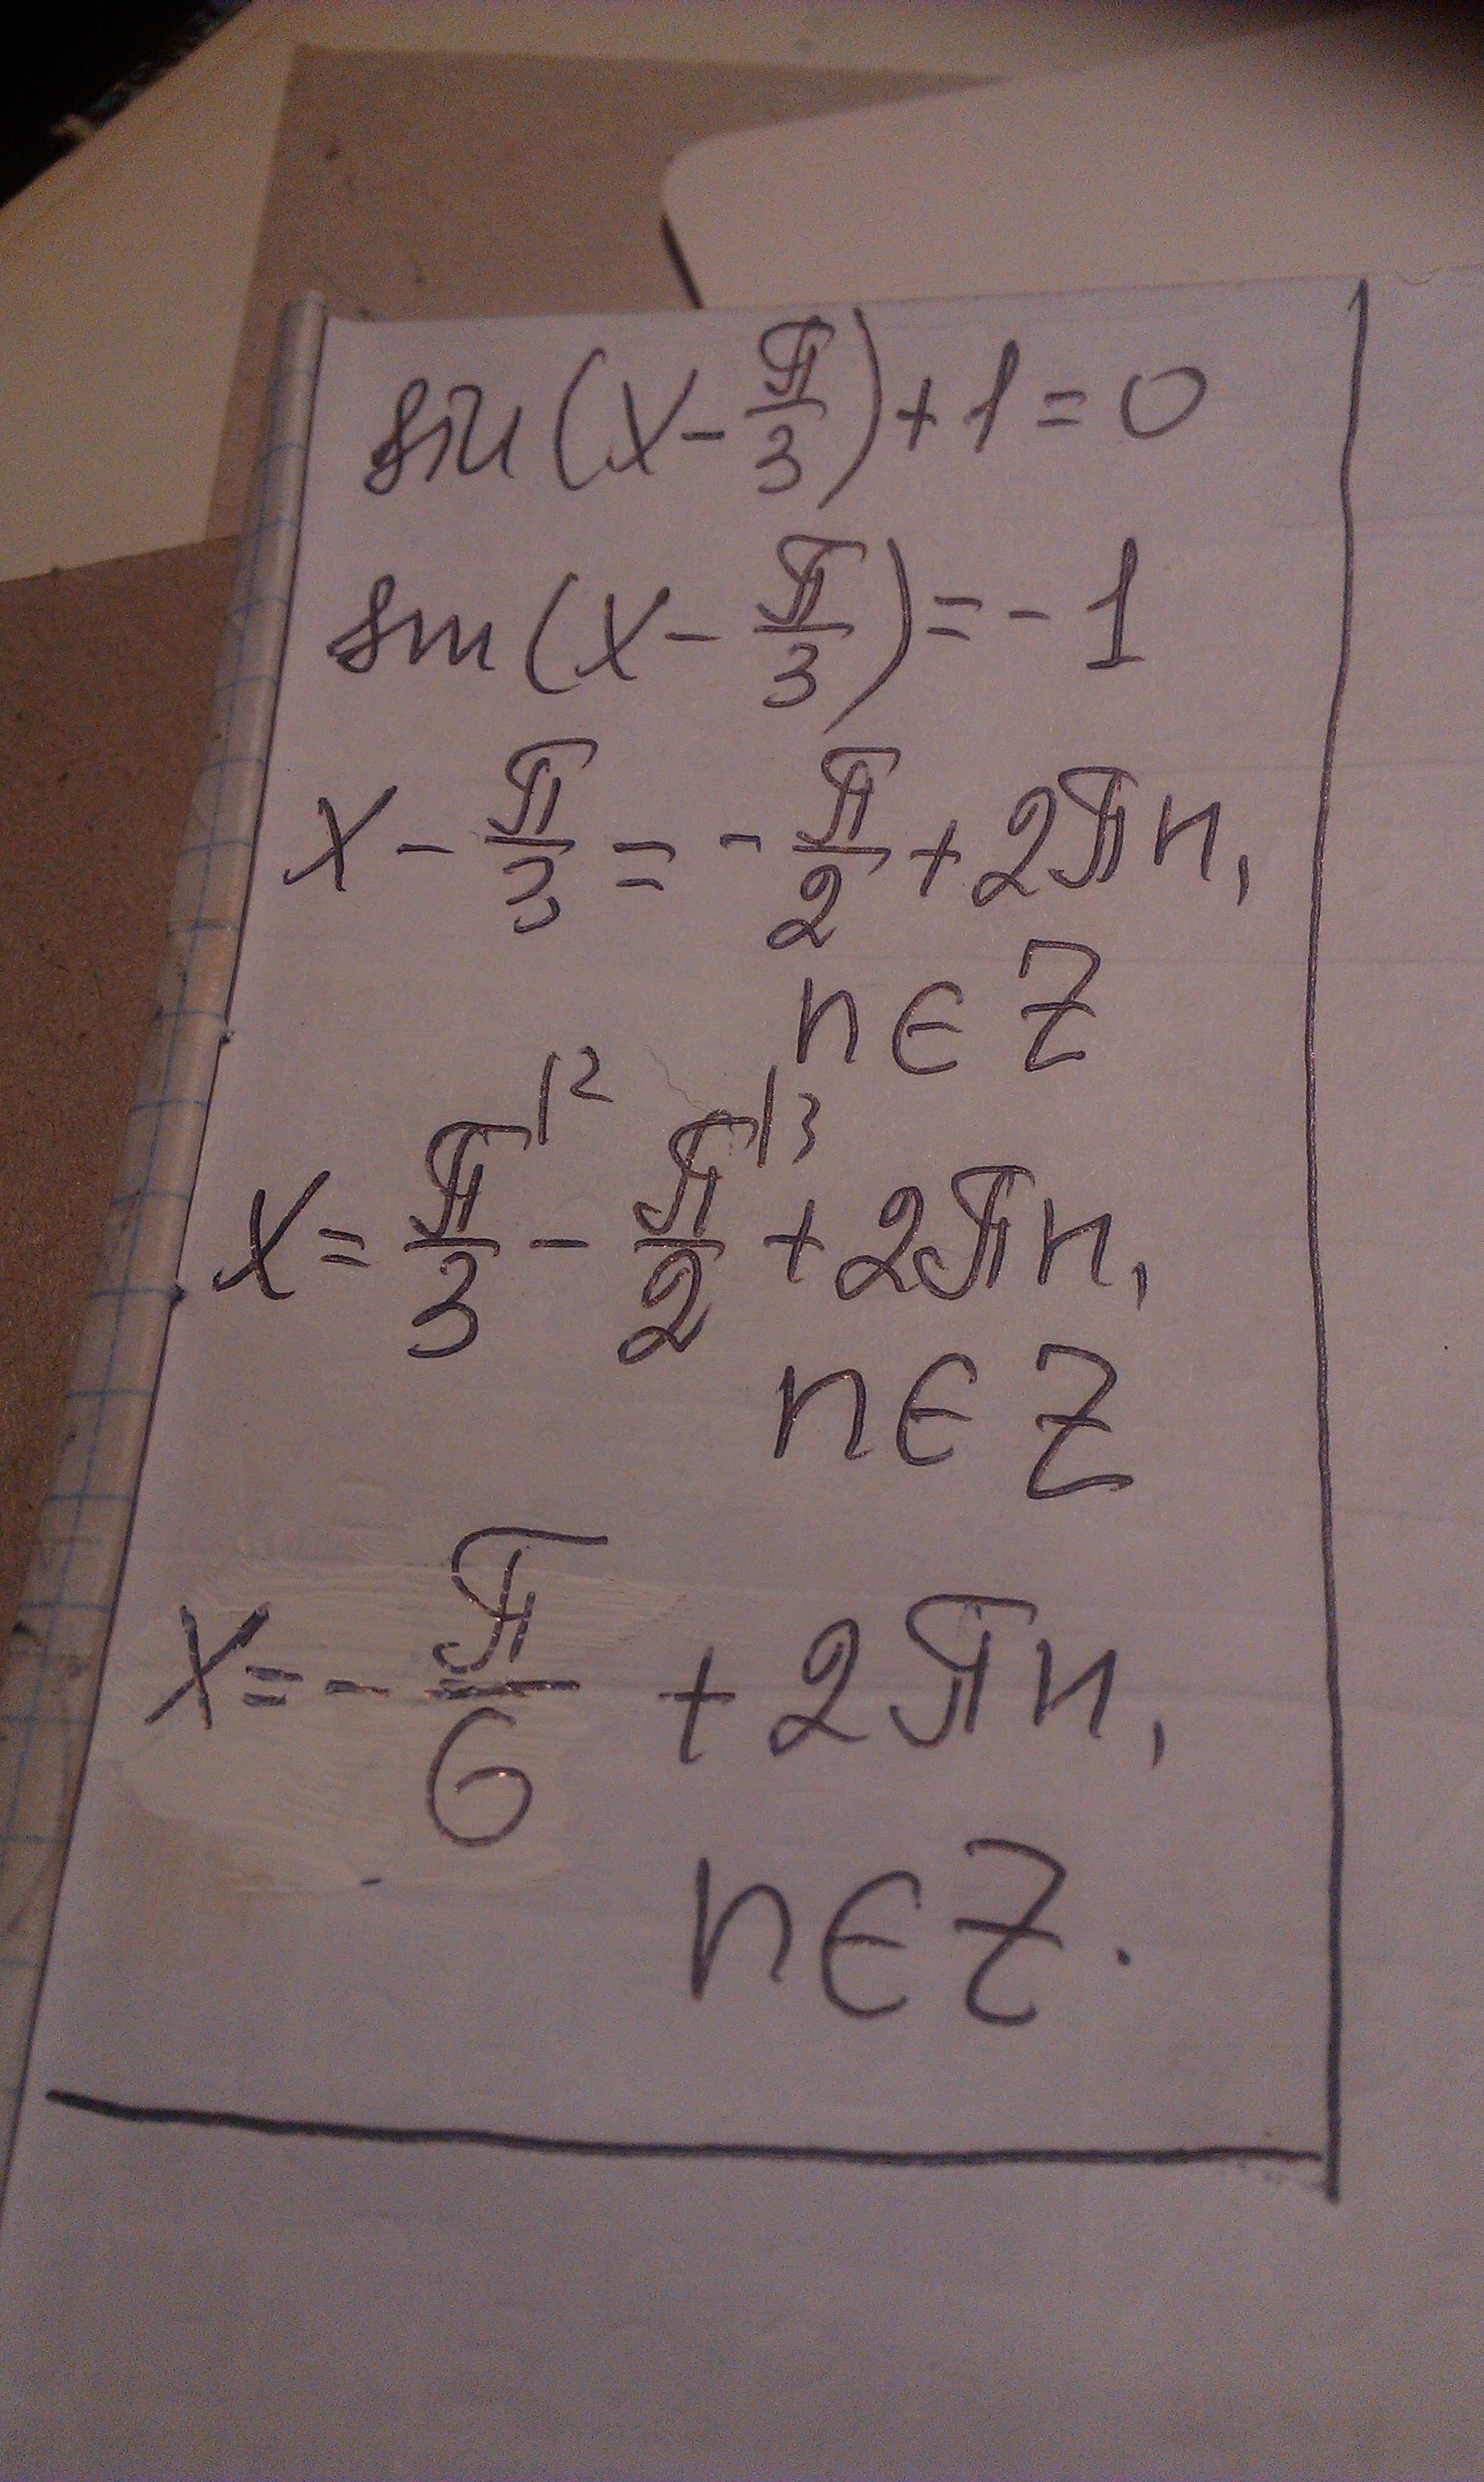 sin(x - π/3) + 1 = 0
sin(x - π/3) = - 1
x - π/3 = - π/2 + 2πn,
n ∈ Z
x = π/3 |2 - π/2 |3 + 2πn,
n ∈ Z
x = - π/6 + 2πn,
n ∈ Z.